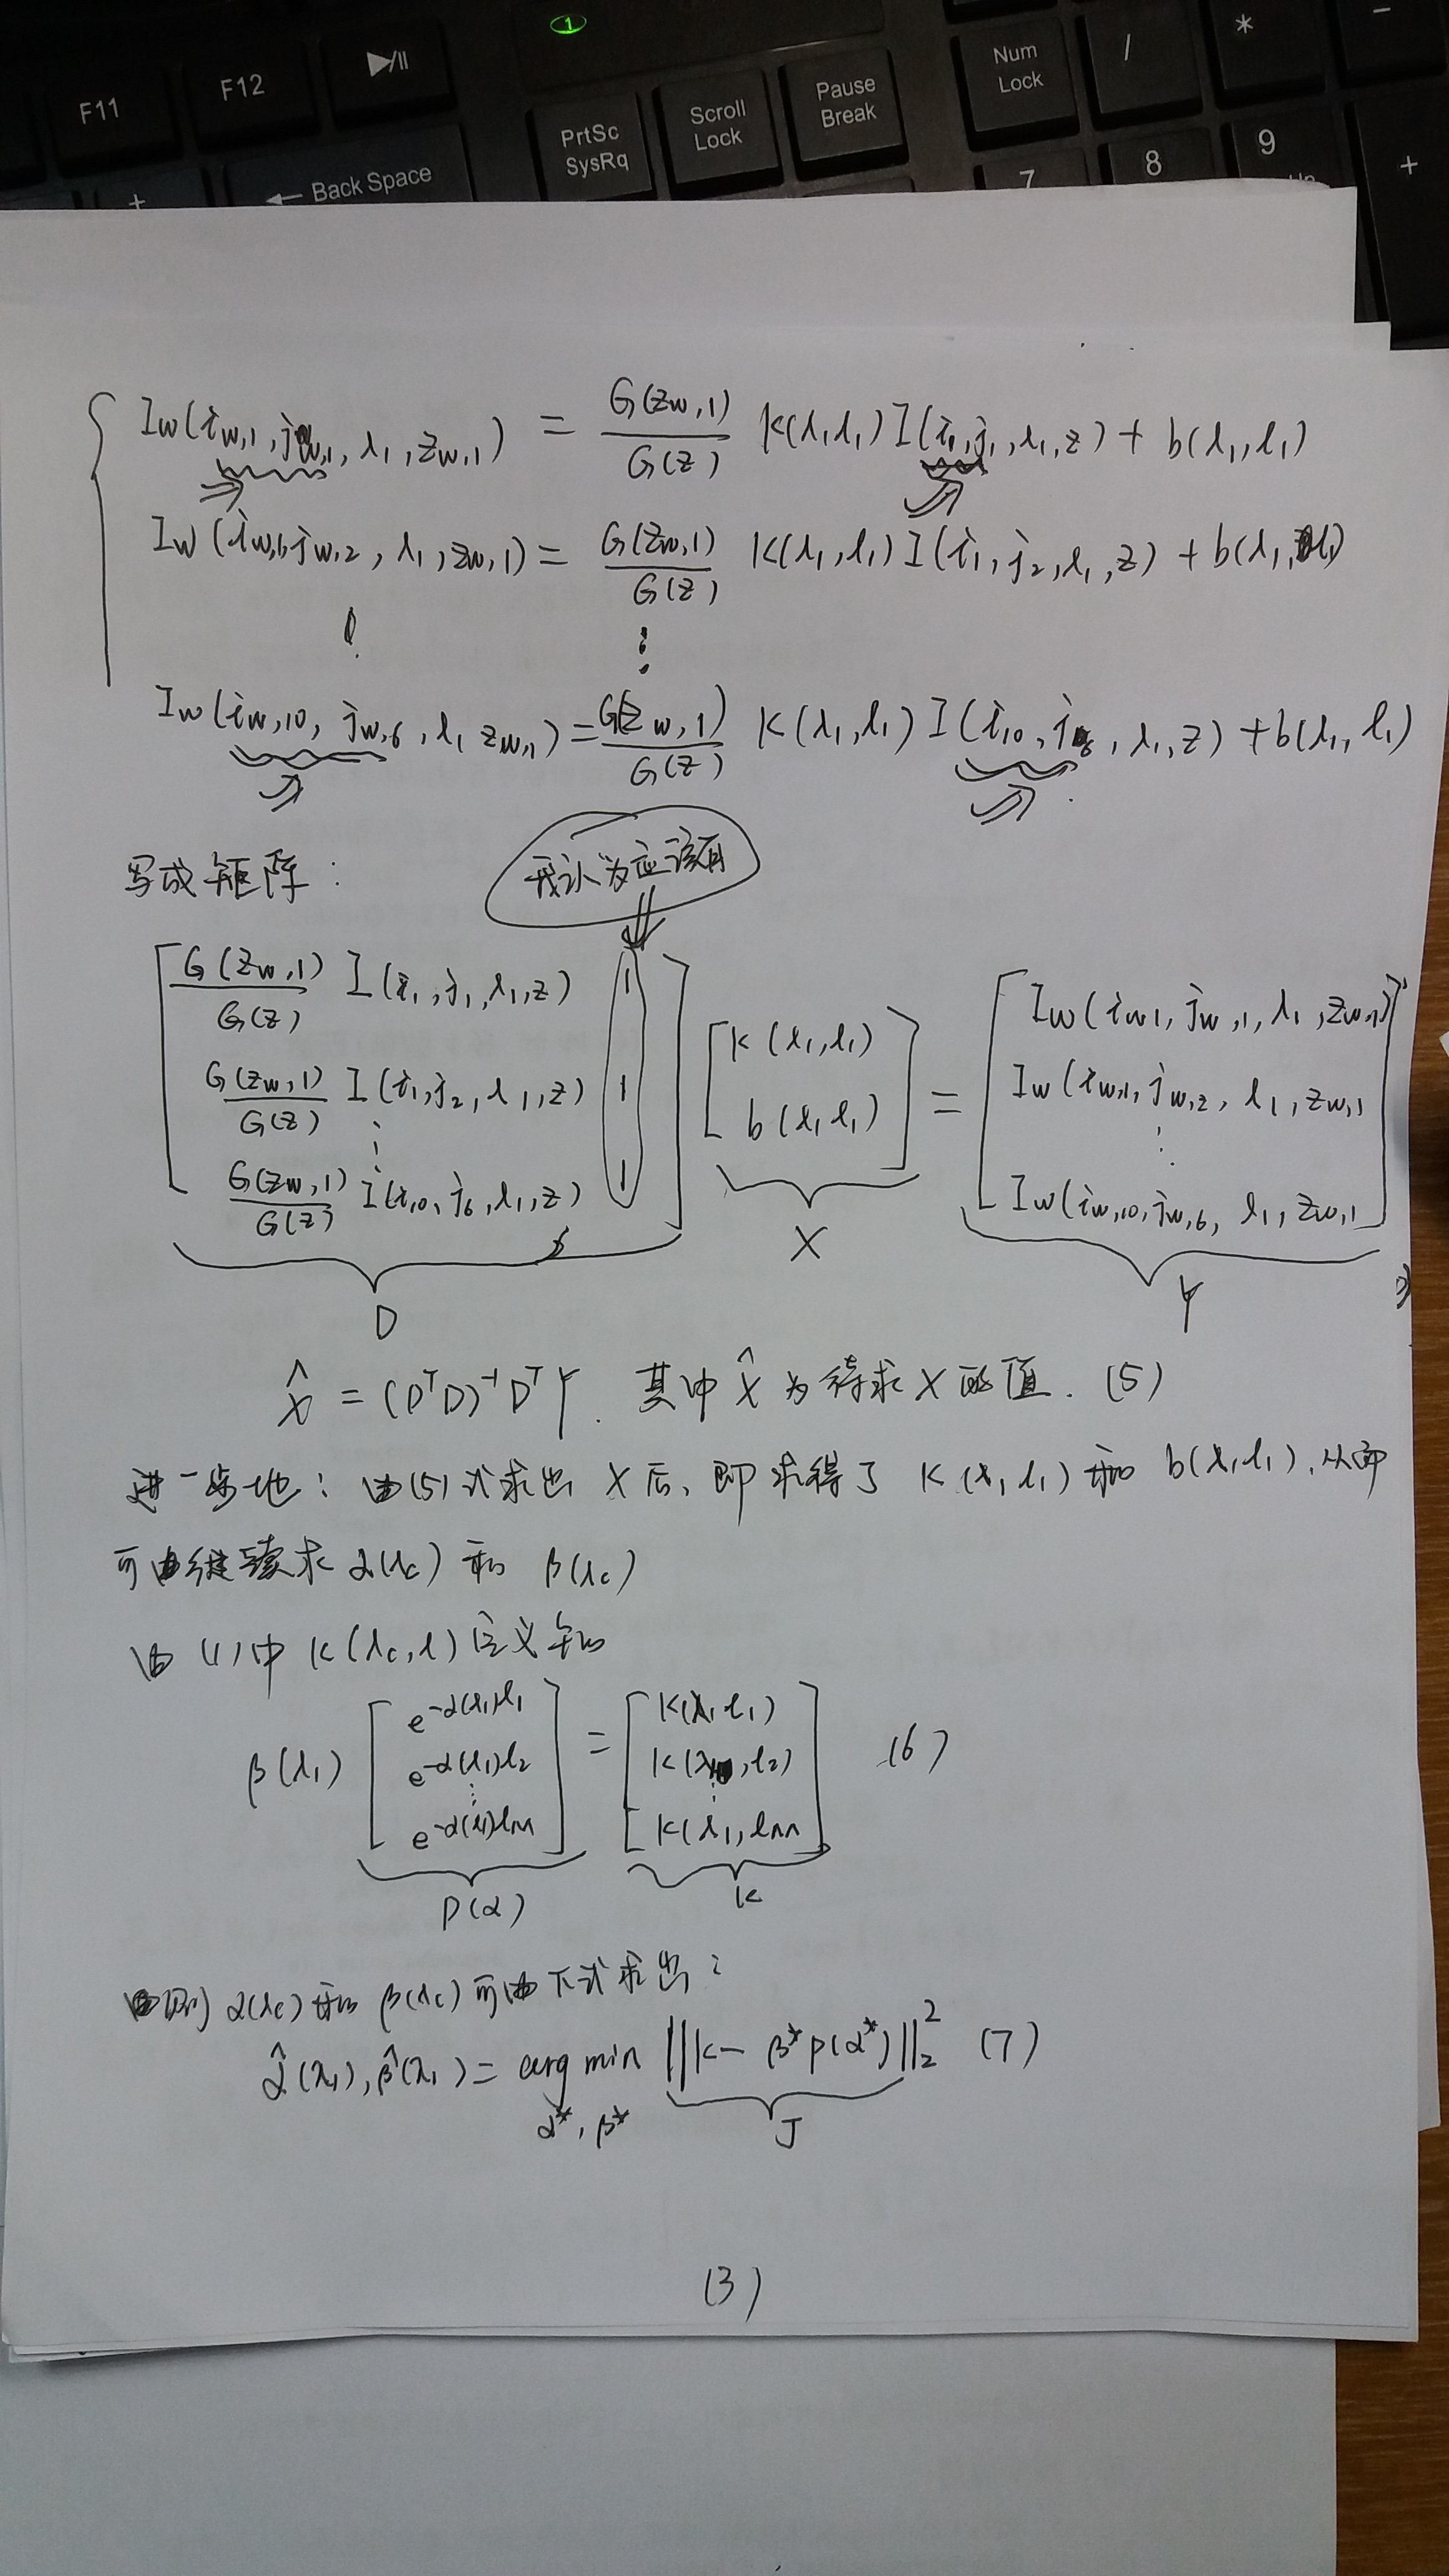 F11
F12
▶/II
PrtSc
SysRq
Scroll
Lock
Pause
Break
Num
Lock
/
*
-
+
← Back Space
7
8
9
+
I_w(i_{w,1}, j_{w,1}, λ_1, z_{w,1}) = G(z_w,1)/G(z) K(λ_1, l_1) I(i_1, j_1, λ_1, z) + b(λ_1, l_1)
I_w(i_{w,1}, j_{w,2}, λ_1, z_{w,1}) = G(z_w,1)/G(z) K(λ_1, l_1) I(i_1, j_2, λ_1, z) + b(λ_1, l_1)
⋮ ⋮
I_w(i_{w,10}, j_{w,6}, λ_1 z_{w,1}) = G(z_w,1)/G(z) K(λ_1, l_1) I(i_{10}, j_6, λ_1, z) + b(λ_1, l_1)
写成矩阵:
我认为应该有
[G(z_w,1)/G(z) I(i_1, j_1, λ_1, z) 1
G(z_w,1)/G(z) I(i_1, j_2, λ_1, z) 1
⋮
G(z_w,1)/G(z) I(i_{10}, j_6, λ_1, z) 1]
[K(λ_1, l_1)
b(λ_1, l_1)]
=
[I_w(i_{w,1}, j_{w,1}, λ_1, z_{w,1})
I_w(i_{w,1}, j_{w,2}, λ_1, z_{w,1}
⋮
I_w(i_{w,10}, j_{w,6}, λ_1, z_{w,1}]
D
X
Y
X̂ = (D^T D)^{-1} D^T Y. 其中 X̂ 为待求 X 的值. (5)
进一步地: 由(5)式求出 X 后, 即求得了 K(λ_1, l_1) 和 b(λ_1, l_1), 从而
可继续求 α(λ_c) 和 β(λ_c)
由 (1)中 K(λ_c, l) 定义知
β(λ_1) [e^{-α(λ_1)l_1}
e^{-α(λ_1)l_2}
⋮
e^{-α(λ_1)l_M}]
=
[K(λ_1, l_1)
K(λ_1, l_2)
⋮
K(λ_1, l_M] (6)
P(α)
K
则 α(λ_c) 和 β(λ_c) 可由下式求出:
α̂(λ_1), β̂(λ_1) = arg min ||K - β* P(α*)||_2^2 (7)
α*, β*
J
(3)